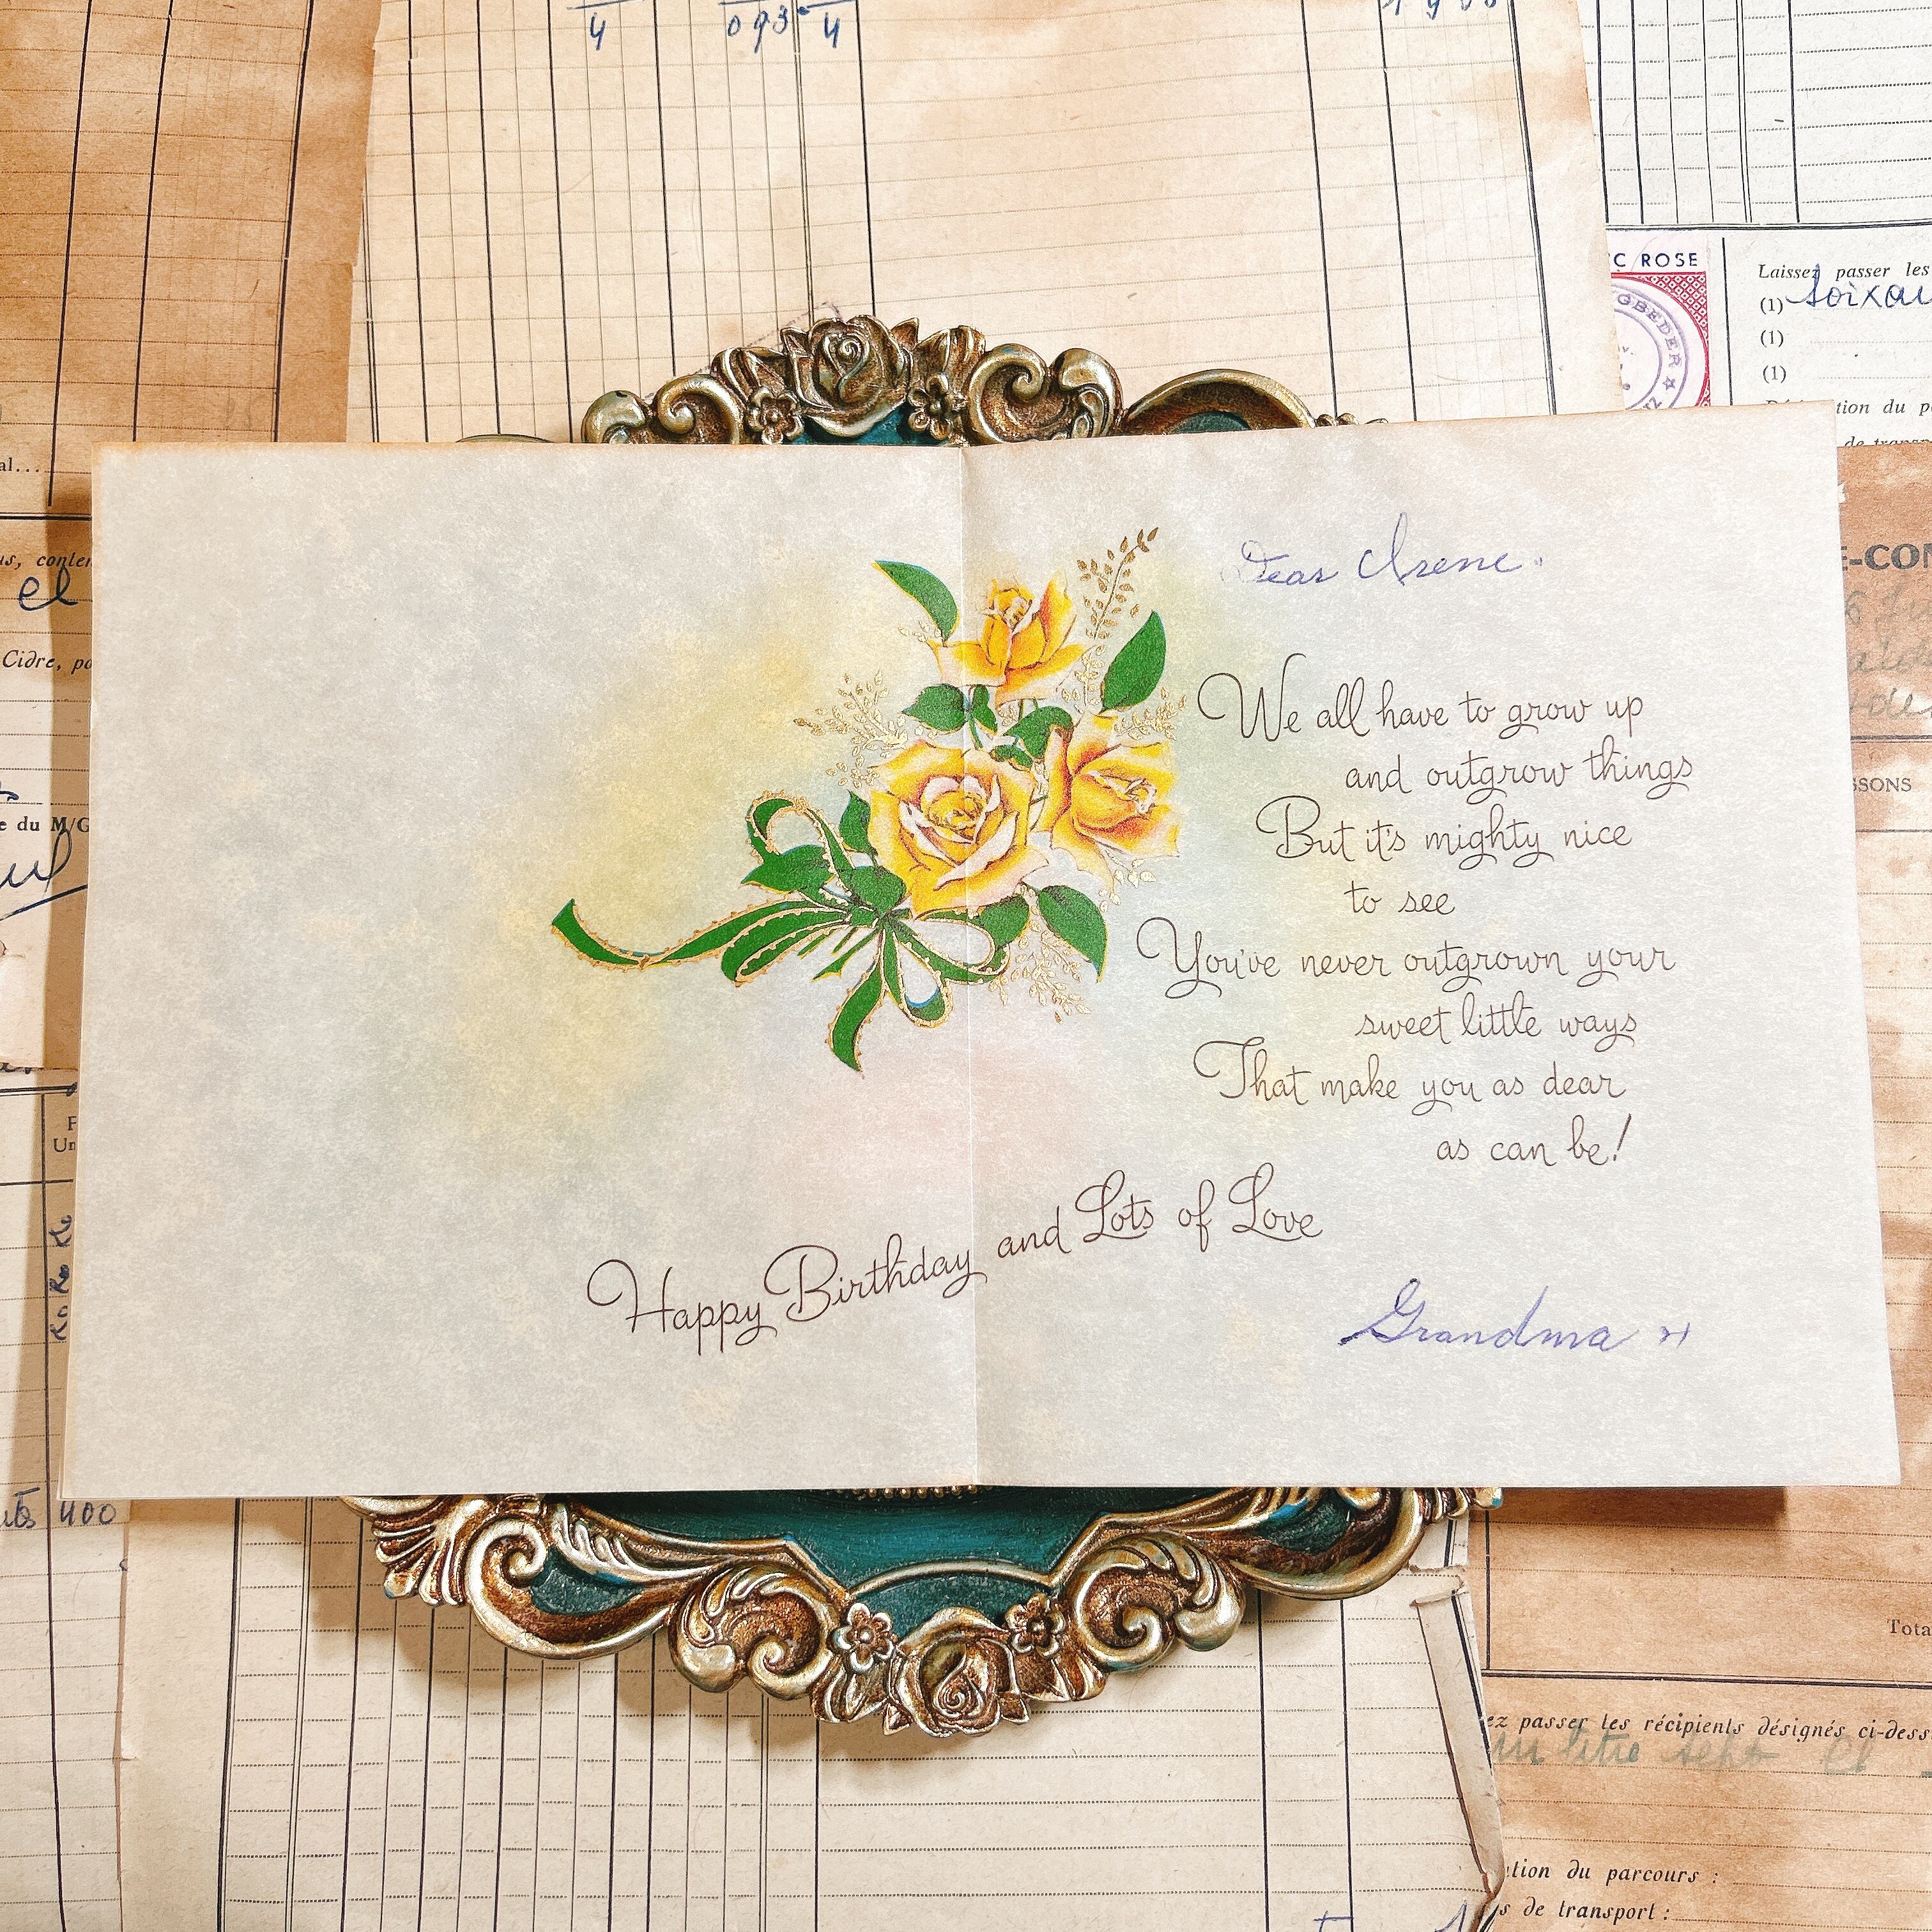 4
093
4
C ROSE
GBEDER
Laissez passer les
(1) soixan
(1)
(1)
tion du p
de transp
al....
us, conten
el
Cidre, po
e du M/G
E-CON
SSONS
Dear Irene.
We all have to grow up
and outgrow things
But it's mighty nice
to see
You've never outgrown your
sweet little ways
That make you as dear
as can be!
Happy Birthday and Lots of Love
Grandma
Un
Ko Ko Ko
400
Tota
ez passer les récipients désignés ci-dess
un litre sept el
tion du parcours :
s de transport :